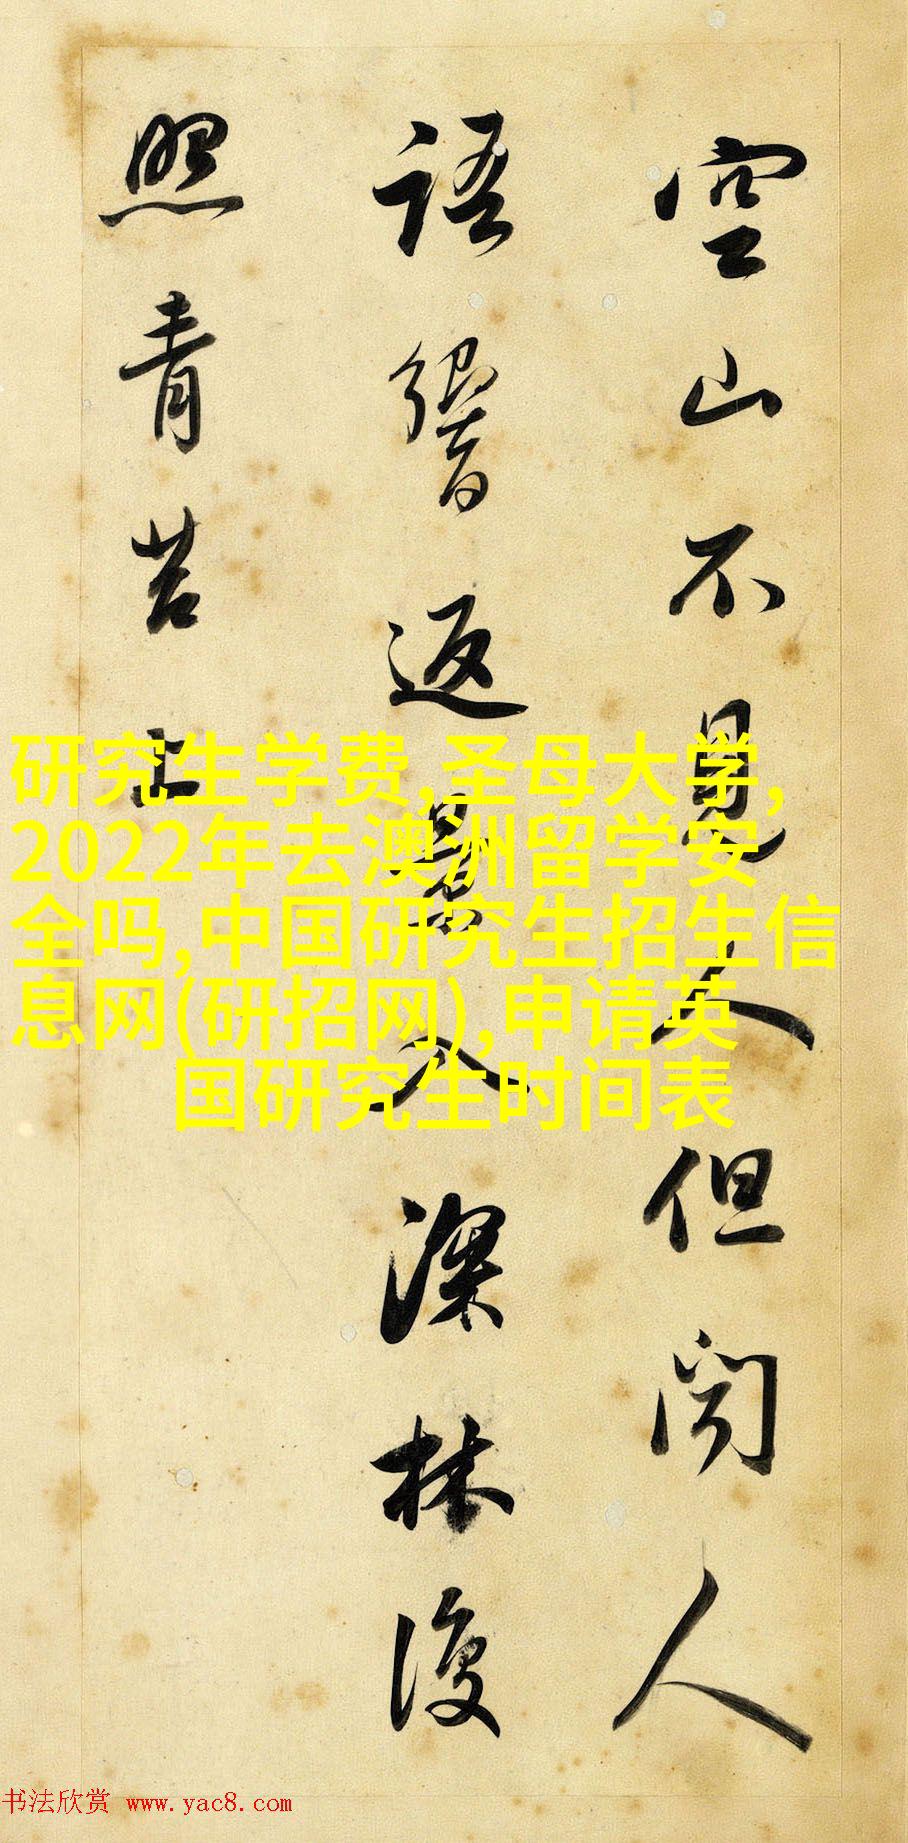 空山不見人但闻人
語響返景入深林復
照青苔上
研究生学费,圣母大学,
2022年去澳洲留学安
全吗,中国研究生招生信
息网(研招网),申请英
国研究生时间表
书法欣赏 www.yac8.com